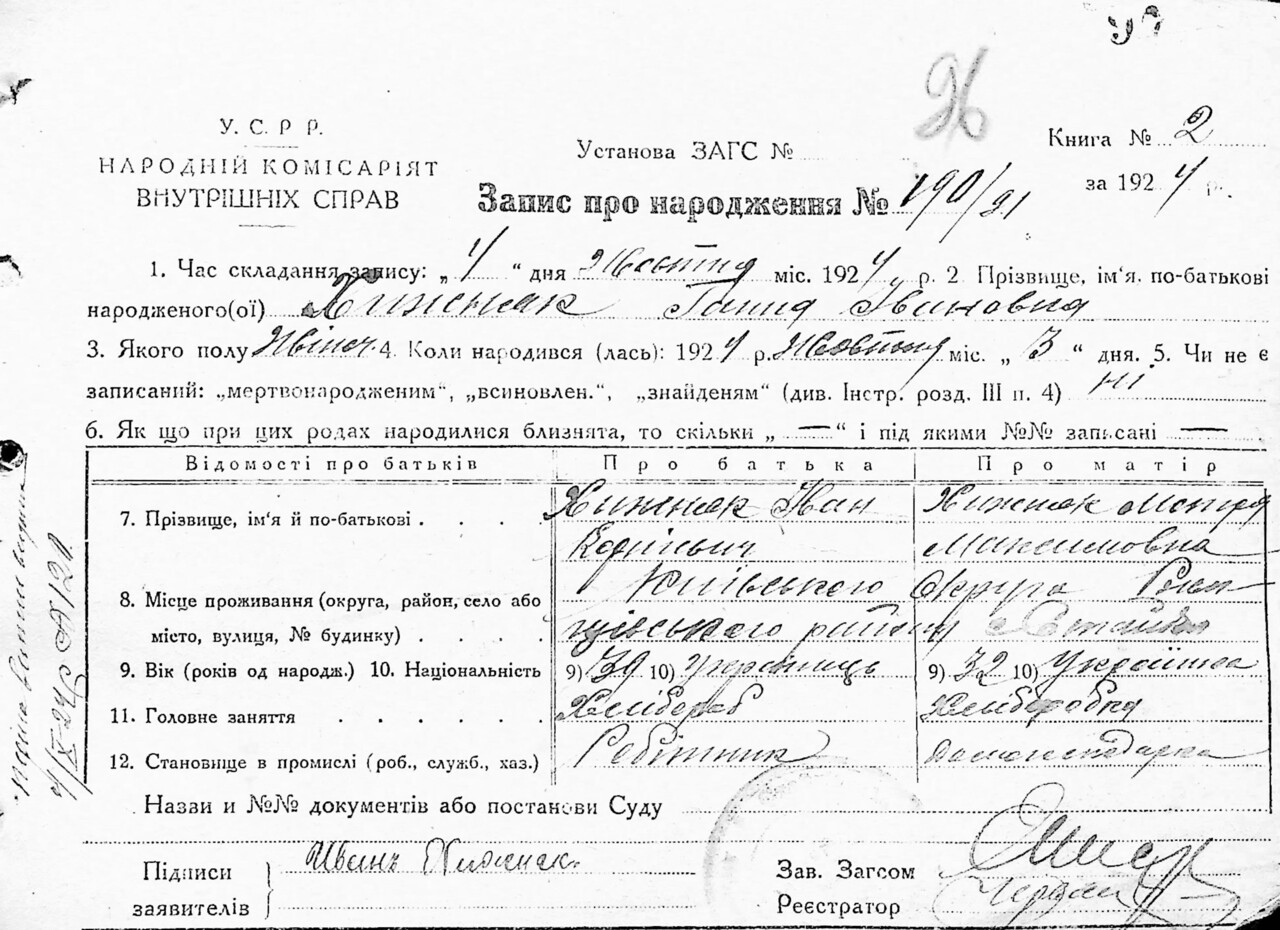 26
У. С. Р Р.
НАРОДНІЙ КОМІСАРІЯТ
ВНУТРІШНІХ СПРАВ
Установа ЗАГС №
Книга № 2
за 1924 р.
Запис про народження № 190/91
1. Час складання запису: „ 4 “ дня Жовтня міс. 1924 р. 2. Прізвище, ім'я, по-батькові
народженого(ої) Хижняк Ганна Івановна
3. Якого полу Жіноч. 4. Коли народився (лась): 1924 р. Жовтня міс. „ 3 “ дня. 5. Чи не є
записаний: „мертвонародженим“, „всиновлен.“, „знайденям“ (див. Інстр. розд. III п. 4) ні
6. Як що при цих родах народилися близнята, то скільки „ — “ і під якими №№ записані —
Відомості про батьків Про батька Про матір
7. Прізвище, ім'я й по-батькові . . . . Хижняк Іван Хижняк Мотря
Максимовна
Київського Округа
8. Місце проживання (округа, район, село або
місто, вулиця, № будинку) . . . . району
9. Вік (років од народж.) 10. Національність 9) 39 10) Українець 9) 32 10) Українка
11. Головне заняття . . . . . . Хлібороб Хліборобка
12. Становище в промислі (роб., служб., хаз.) Робітник Домогосподарка
Назви и №№ документів або постанови Суду
Підписи
заявителів
Иванъ Хижнякъ
Зав. Загсом
Реєстратор